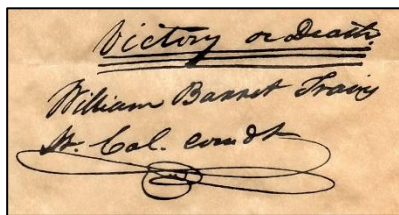 Victory or Death
William Barret Travis
Lt. Col. comdt